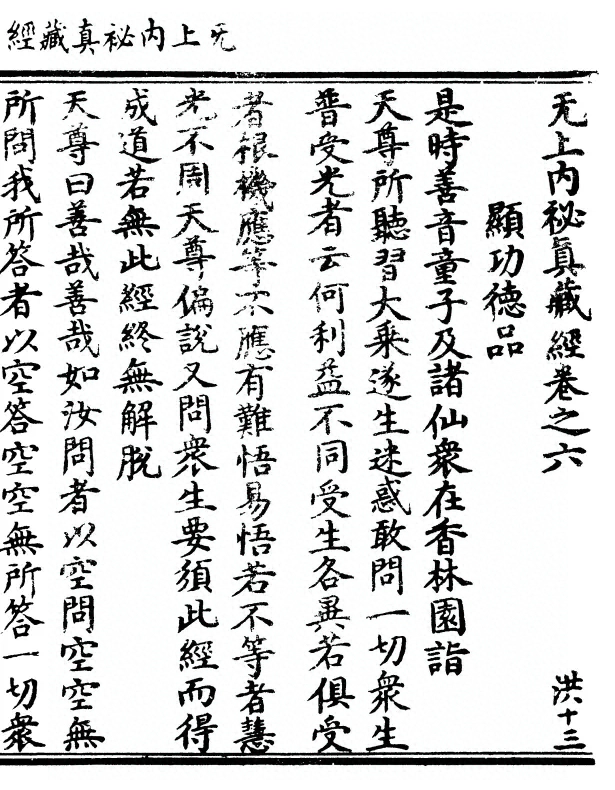 无上内祕真藏經
无上内祕真藏經卷之六 洪十三
顯功德品
是時善音童子及諸仙衆在香林園詣
天尊所聽習大乗遂生迷惑敢問一切衆生
普受光者云何利益不同受生各異若俱受
者根機應等不應有難悟易悟若不等者慧
光不周天尊偏說又問衆生要須此經而得
成道若無此經終無解脫
天尊曰善哉善哉如汝問者以空問空空無
所問我所答者以空答空空無所答一切衆